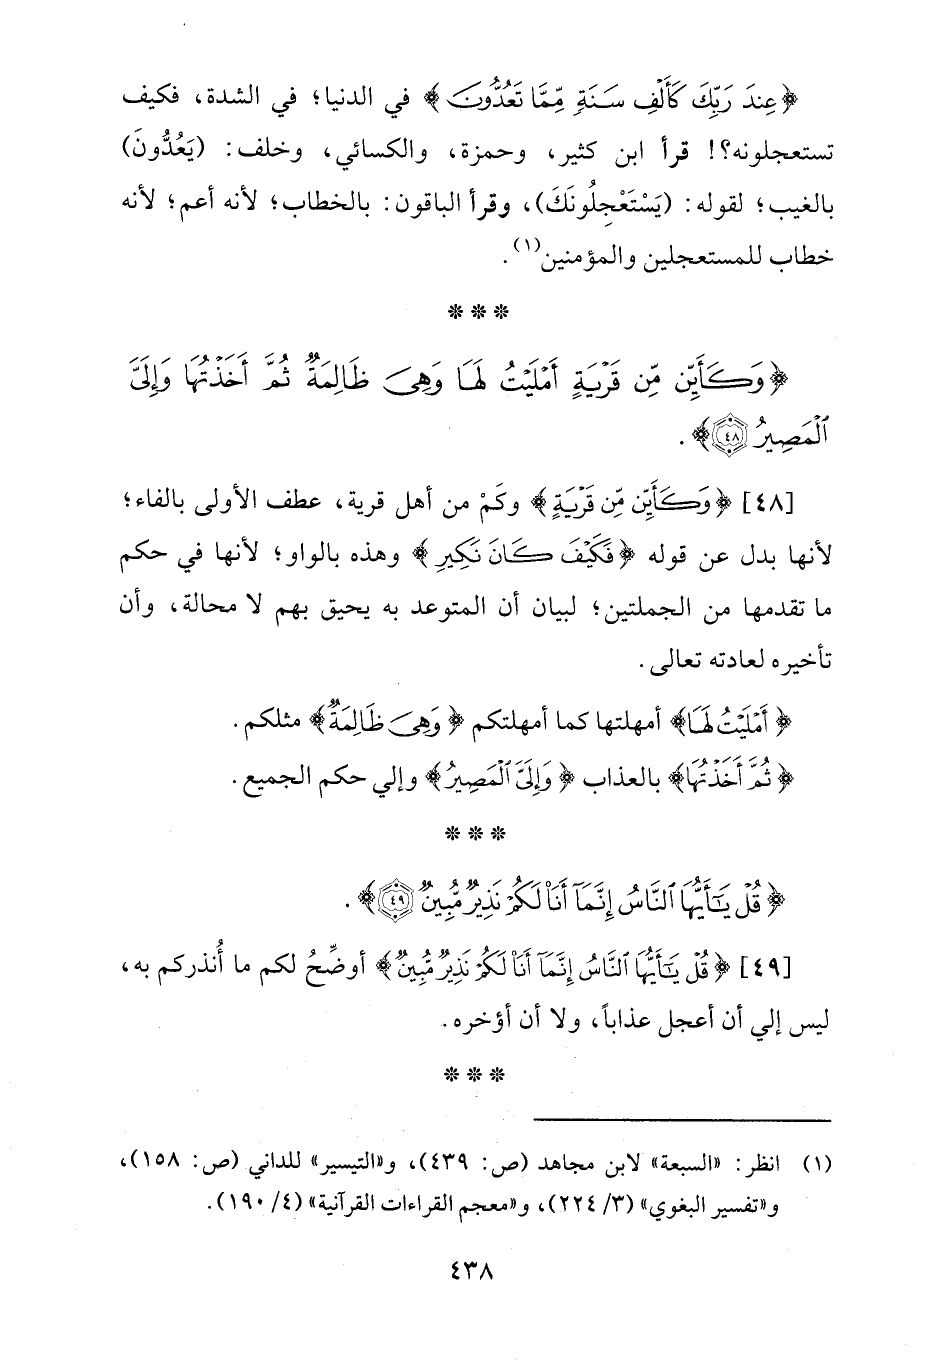 ﴿عِندَ رَبِّكَ كَأَلْفِ سَنَةٍ مِّمَّا تَعُدُّونَ﴾ في الدنيا؛ في الشدة، فكيف
تستعجلونه؟! قرأ ابن كثير، وحمزة، والكسائي، وخلف: (يَعُدُّونَ)
بالغيب؛ لقوله: (يَسْتَعْجِلُونَكَ)، وقرأ الباقون: بالخطاب؛ لأنه أعم؛ لأنه
خطاب للمستعجلين والمؤمنين(١).
***
﴿وَكَأَيِّن مِّن قَرْيَةٍ أَمْلَيْتُ لَهَا وَهِىَ ظَالِمَةٌ ثُمَّ أَخَذْتُهَا وَإِلَىَّ
ٱلْمَصِيرُ ٤٨﴾.
[٤٨] ﴿وَكَأَيِّن مِّن قَرْيَةٍ﴾ وكَمْ من أهل قرية، عطف الأولى بالفاء؛
لأنها بدل عن قوله ﴿فَكَيْفَ كَانَ نَكِيرِ﴾ وهذه بالواو؛ لأنها في حكم
ما تقدمها من الجملتين؛ لبيان أن المتوعد به يحيق بهم لا محالة، وأن
تأخيره لعادته تعالى.
﴿أَمْلَيْتُ لَهَا﴾ أمهلتها كما أمهلتكم ﴿وَهِىَ ظَالِمَةٌ﴾ مثلكم.
﴿ثُمَّ أَخَذْتُهَا﴾ بالعذاب ﴿وَإِلَىَّ ٱلْمَصِيرُ﴾ وإلي حكم الجميع.
***
﴿قُلْ يَٰٓأَيُّهَا ٱلنَّاسُ إِنَّمَآ أَنَا۠ لَكُمْ نَذِيرٌ مُّبِينٌ ٤٩﴾.
[٤٩] ﴿قُلْ يَٰٓأَيُّهَا ٱلنَّاسُ إِنَّمَآ أَنَا۠ لَكُمْ نَذِيرٌ مُّبِينٌ﴾ أوضِّحُ لكم ما أُنذركم به،
ليس إلي أن أعجل عذاباً، ولا أن أؤخره.
***
(١) انظر: «السبعة» لابن مجاهد (ص: ٤٣٩)، و«التيسير» للداني (ص: ١٥٨)،
و«تفسير البغوي» (٣/ ٢٢٤)، و«معجم القراءات القرآنية» (٤/ ١٩٠).
٤٣٨